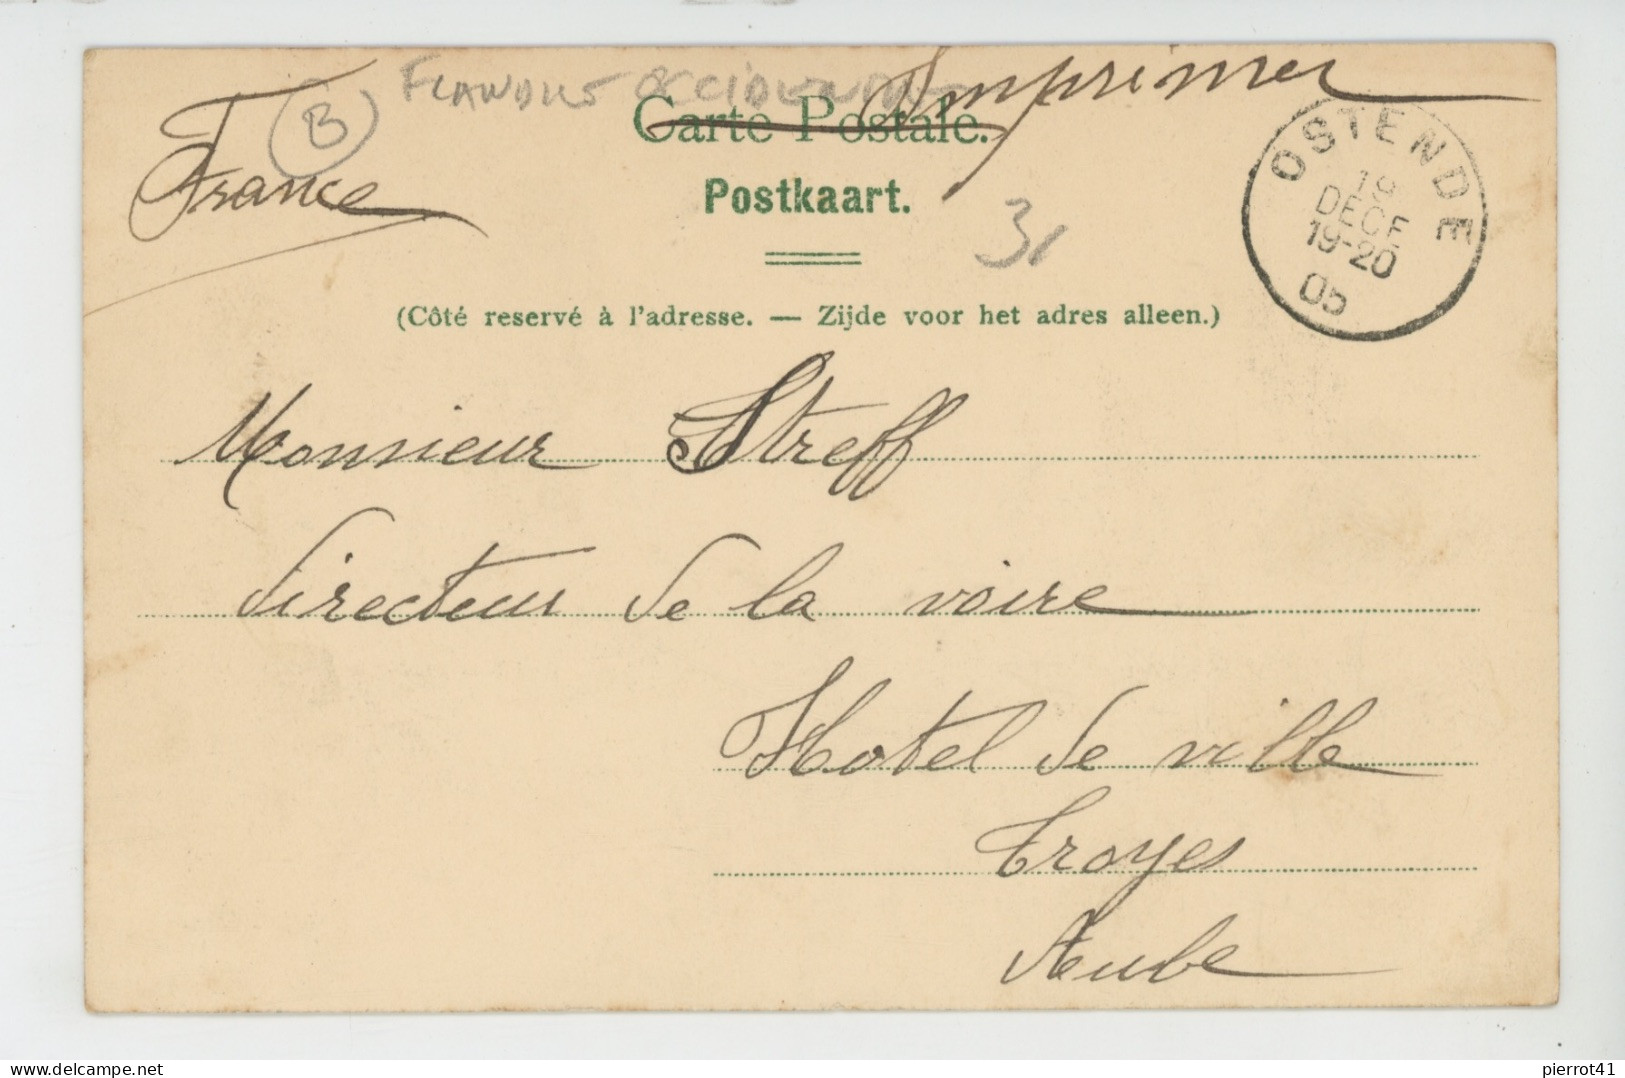 Flandre Occidentale
Imprimé
B
France
Carte Postale.
Postkaart.
31
OSTENDE
19
DECE
19-20
05
(Côté reservé à l'adresse. — Zijde voor het adres alleen.)
Monsieur Streff
Directeur de la voire
Hotel de ville
Troyes
Aube
pierrot41